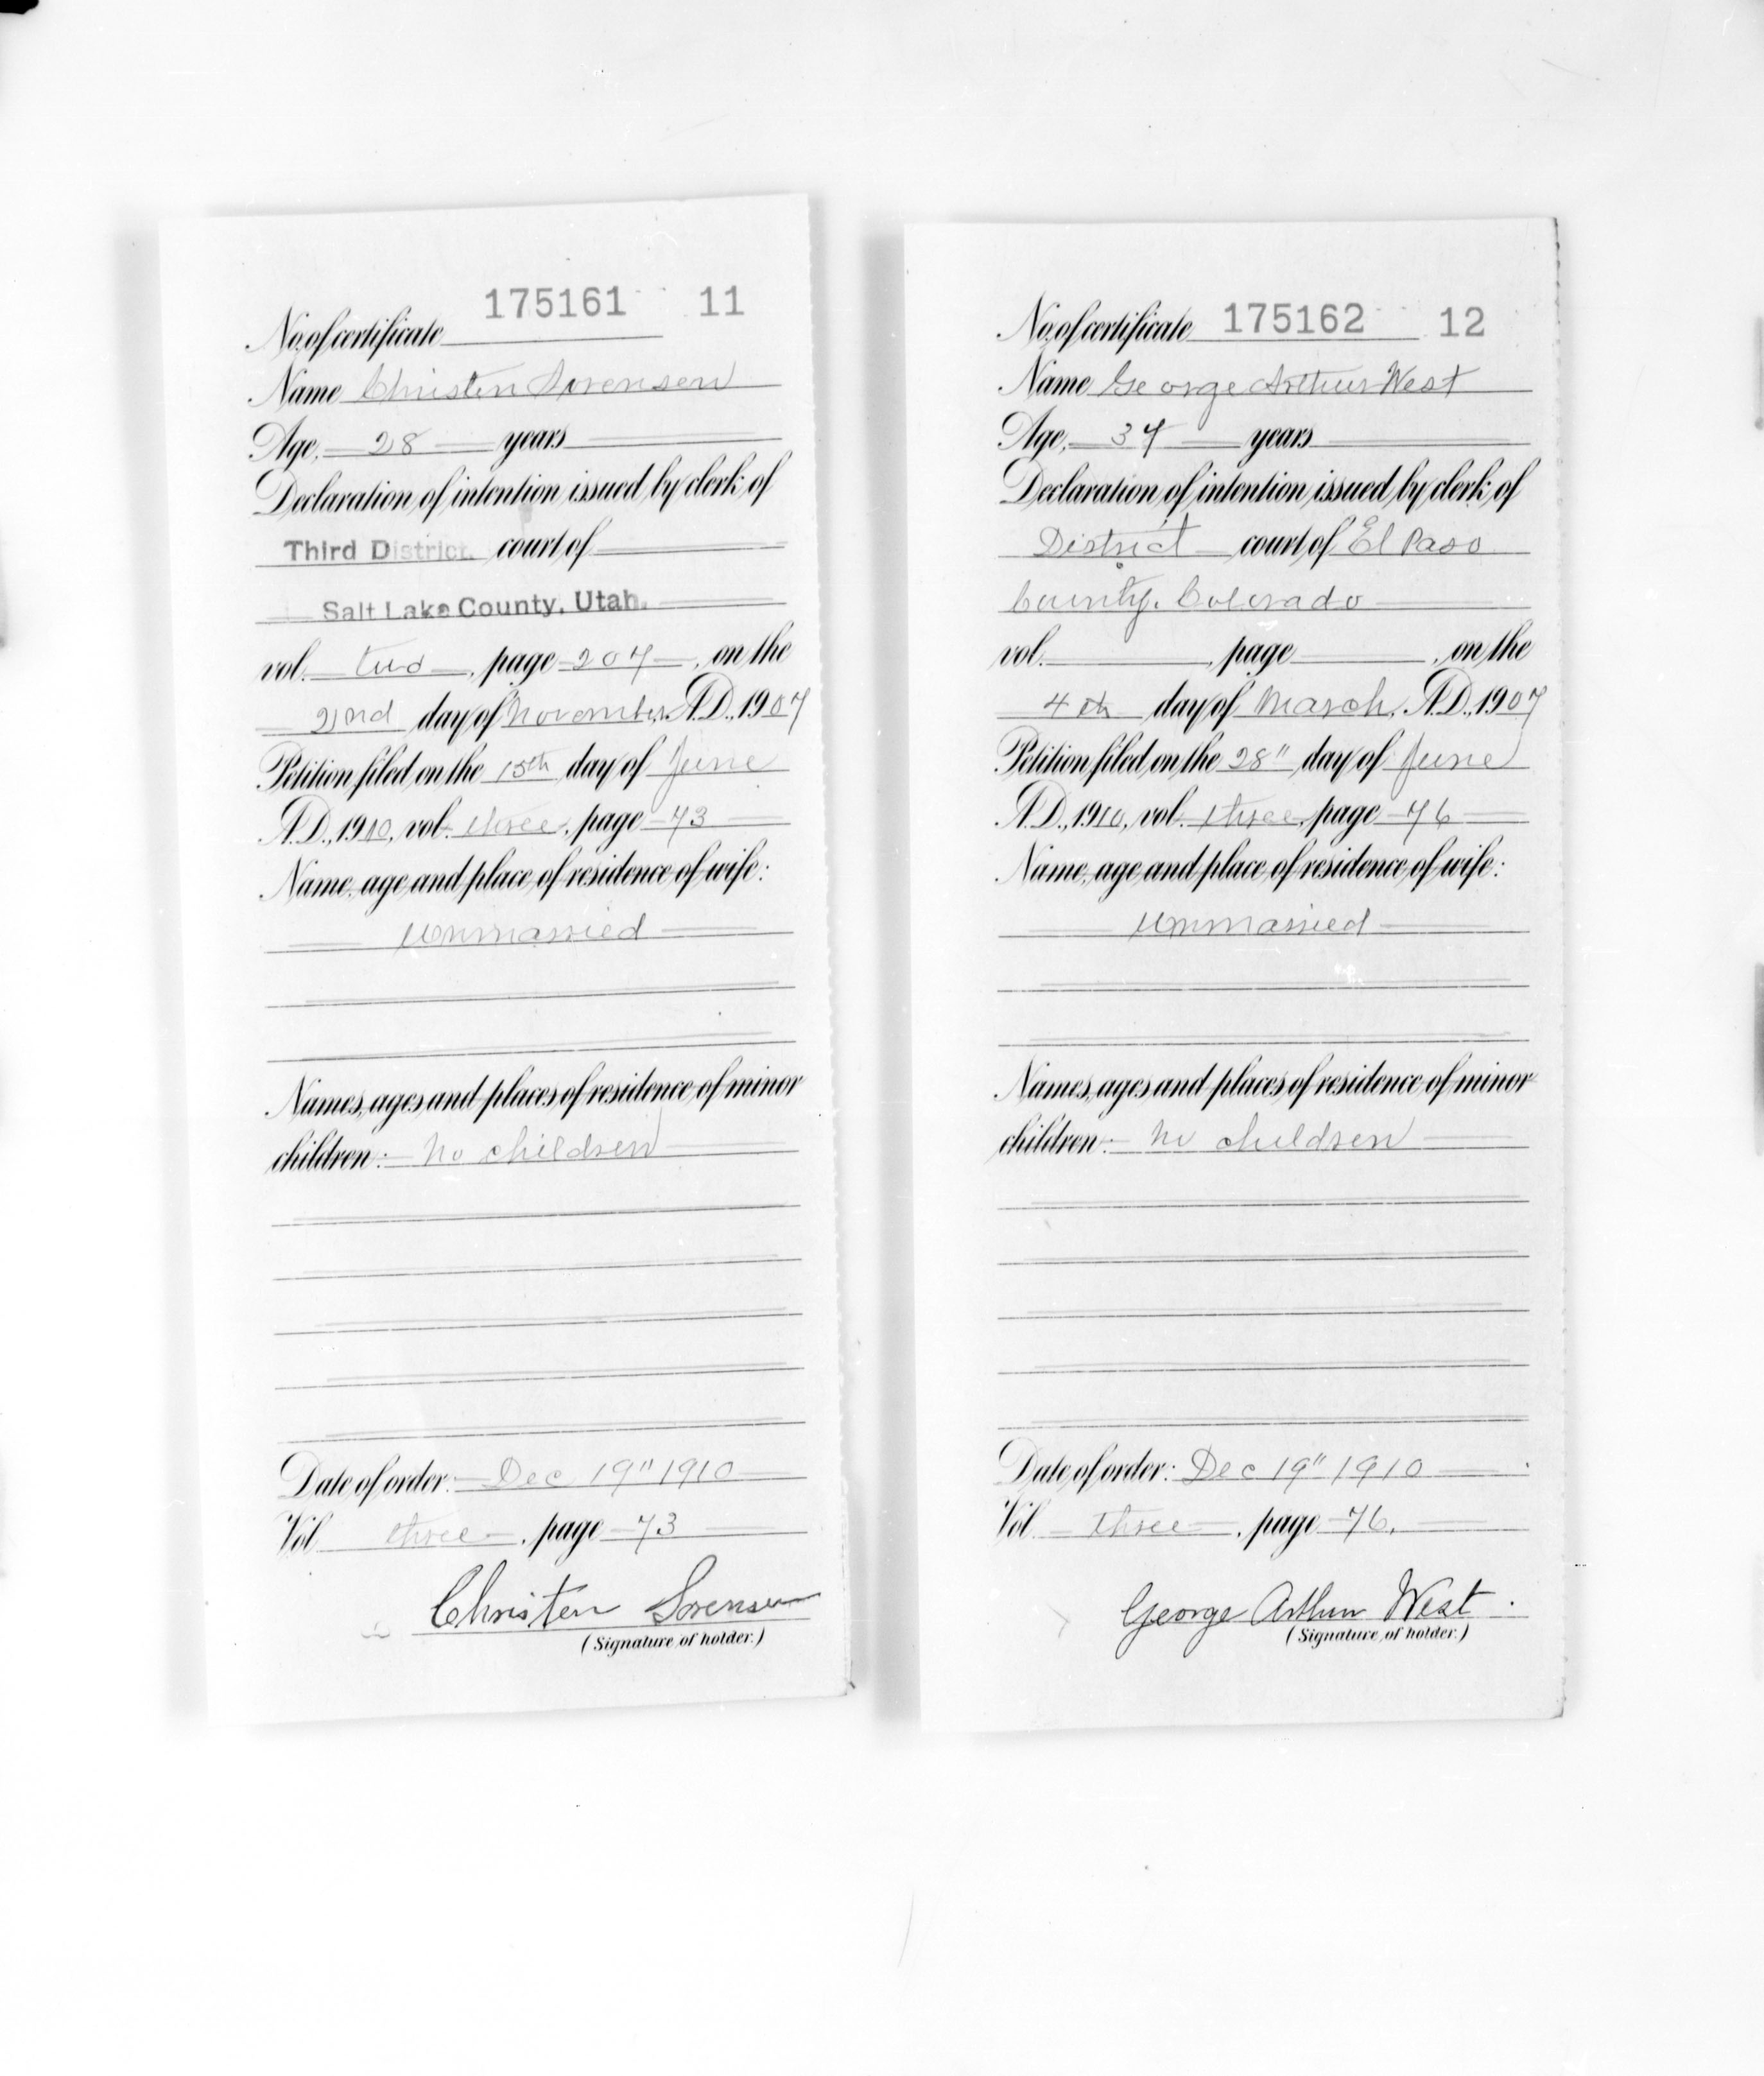 175161 11
No. of certificate
Name Christen Sorensen
Age, 28 years
Declaration of intention issued by clerk of
Third District court of
Salt Lake County, Utah.
vol. two, page 207, on the
22nd day of November, A.D., 1907
Petition filed on the 15th day of June
A.D., 1910, vol. three, page 73
Name, age and place of residence of wife:
Unmarried
Names, ages and places of residence of minor
children: No children
Date of order: Dec 19" 1910
Vol three, page 73
Christen Sorensen
(Signature of holder.)
No. of certificate 175162 12
Name George Arthur West
Age, 37 years
Declaration of intention issued by clerk of
District court of El Paso
County, Colorado
vol. , page , on the
4th day of March, A.D., 1907
Petition filed on the 28" day of June
A.D., 1910, vol. three, page 76
Name, age and place of residence of wife:
Unmarried
Names, ages and places of residence of minor
children: No children
Date of order: Dec 19" 1910
Vol three, page 76.
George Arthur West
(Signature of holder.)